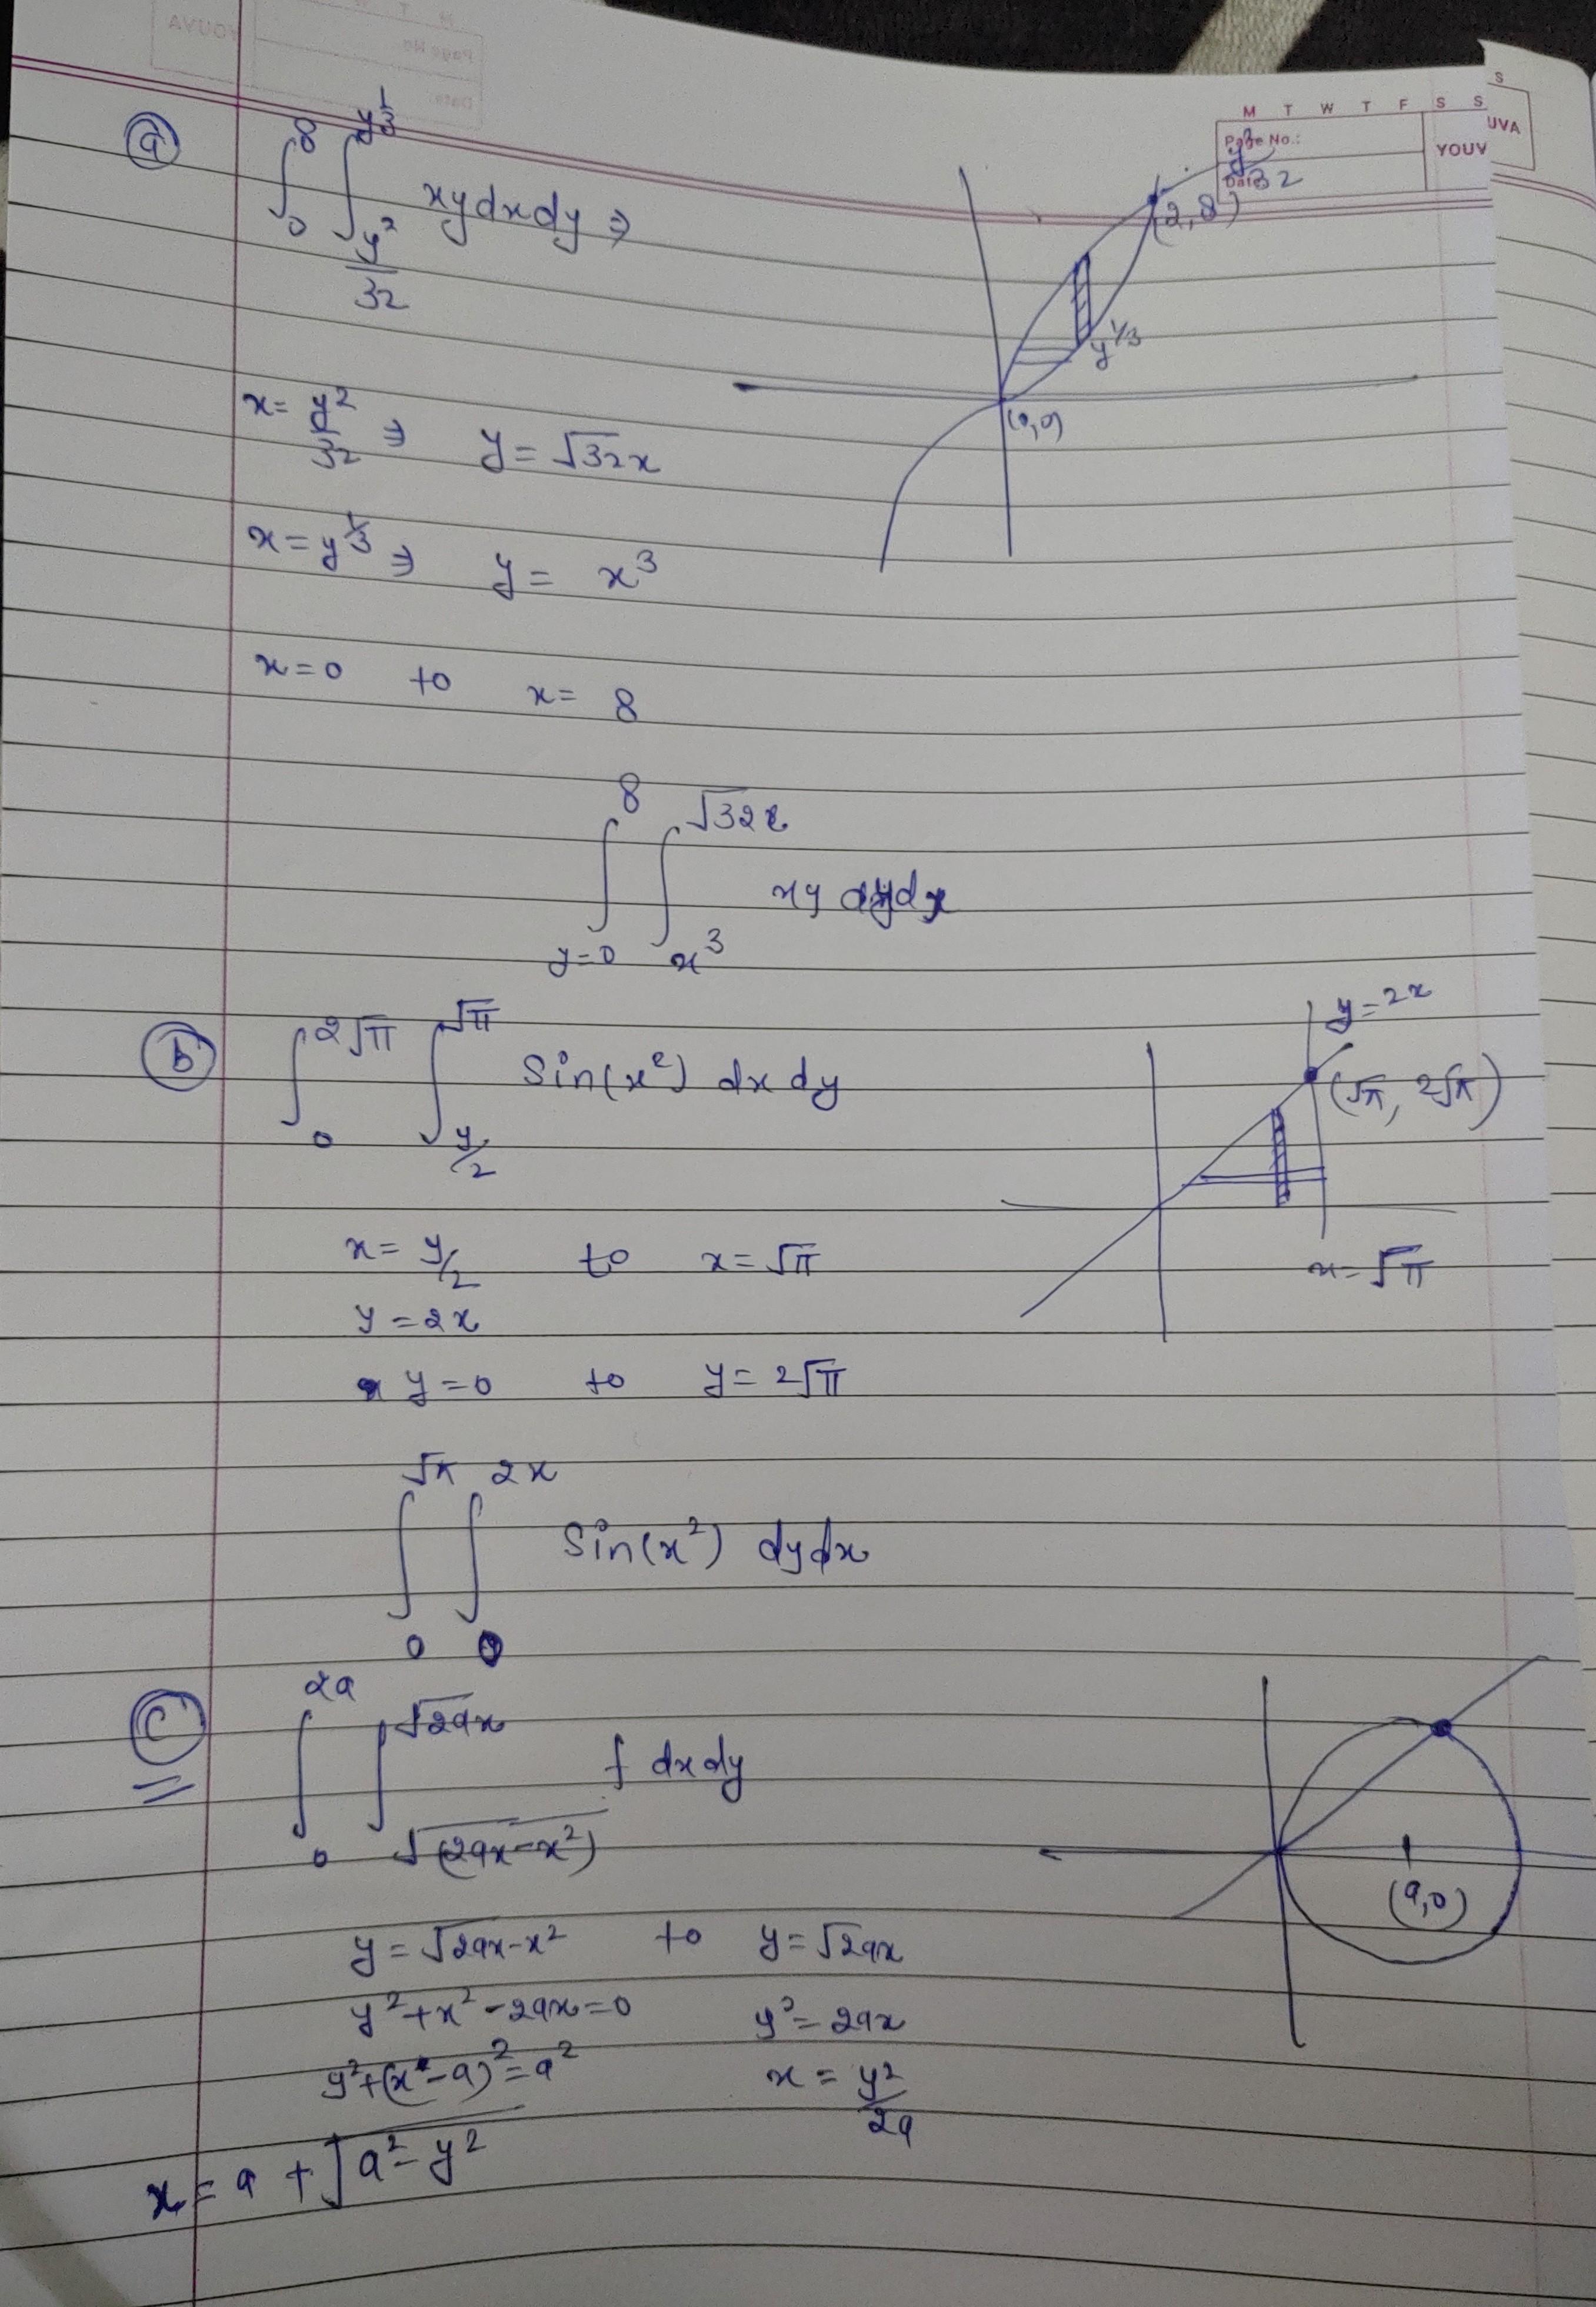 M T W T F S S
Page No.:
Date:
YOUV
UVA
S
YOUVA
Page No.
Date:
ⓐ ∫₀⁸ ∫_{y²/32}^{y^{1/3}} xy dx dy ⇒
y²/32
(2, 8)
y^{1/3}
(0,0)
x = y²/32 ⇒ y = √32x
x = y^{1/3} ⇒ y = x³
x = 0 to x = 8
∫_{y=0}^{8} ∫_{x³}^{√32x} xy dy dx
ⓑ ∫₀^{2√π} ∫_{y/2}^{√π} Sin(x²) dx dy
y = 2x
(√π, 2√π)
x = √π
x = y/2 to x = √π
y = 2x
y = 0 to y = 2√π
∫₀^{√π} ∫₀^{2x} Sin(x²) dy dx
ⓒ ∫₀^{2a} ∫_{√(2ax-x²)}^{√2ax} f dx dy
(a,0)
y = √2ax-x² to y = √2ax
y²+x²-2ax=0 y² = 2ax
y²+(x-a)² = a² x = y²/2a
x = a + √a²-y²